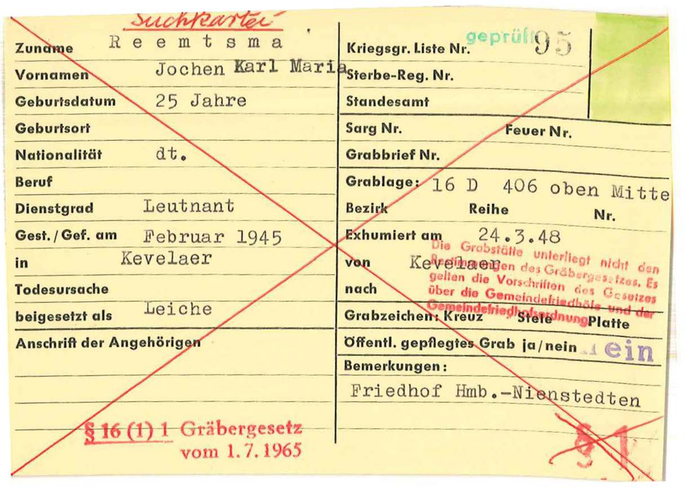 Suchkartei
Zuname Reemtsma
Vornamen Jochen Karl Maria
Geburtsdatum 25 Jahre
Geburtsort
Nationalität dt.
Beruf
Dienstgrad Leutnant
Gest./Gef. am Februar 1945
in Kevelaer
Todesursache
beigesetzt als Leiche
Anschrift der Angehörigen
§ 16 (1) 1 Gräbergesetz
vom 1.7.1965
geprüft
Kriegsgr. Liste Nr. 95
Sterbe-Reg. Nr.
Standesamt
Sarg Nr. Feuer Nr.
Grabbrief Nr.
Grablage: 16 D 406 oben Mitte
Bezirk Reihe Nr.
Exhumiert am 24.3.48
von Kevelaer
nach
Die Grabstätte unterliegt nicht den
Bestimmungen des Gräbergesetzes. Es
gelten die Vorschriften des Gesetzes
über die Gemeindefriedhöfe und der
Gemeindefriedhofsordnung
Grabzeichen: Kreuz Stele Platte
Öffentl. gepflegtes Grab ja/nein nein
Bemerkungen:
Friedhof Hmb.-Nienstedten
§ 1